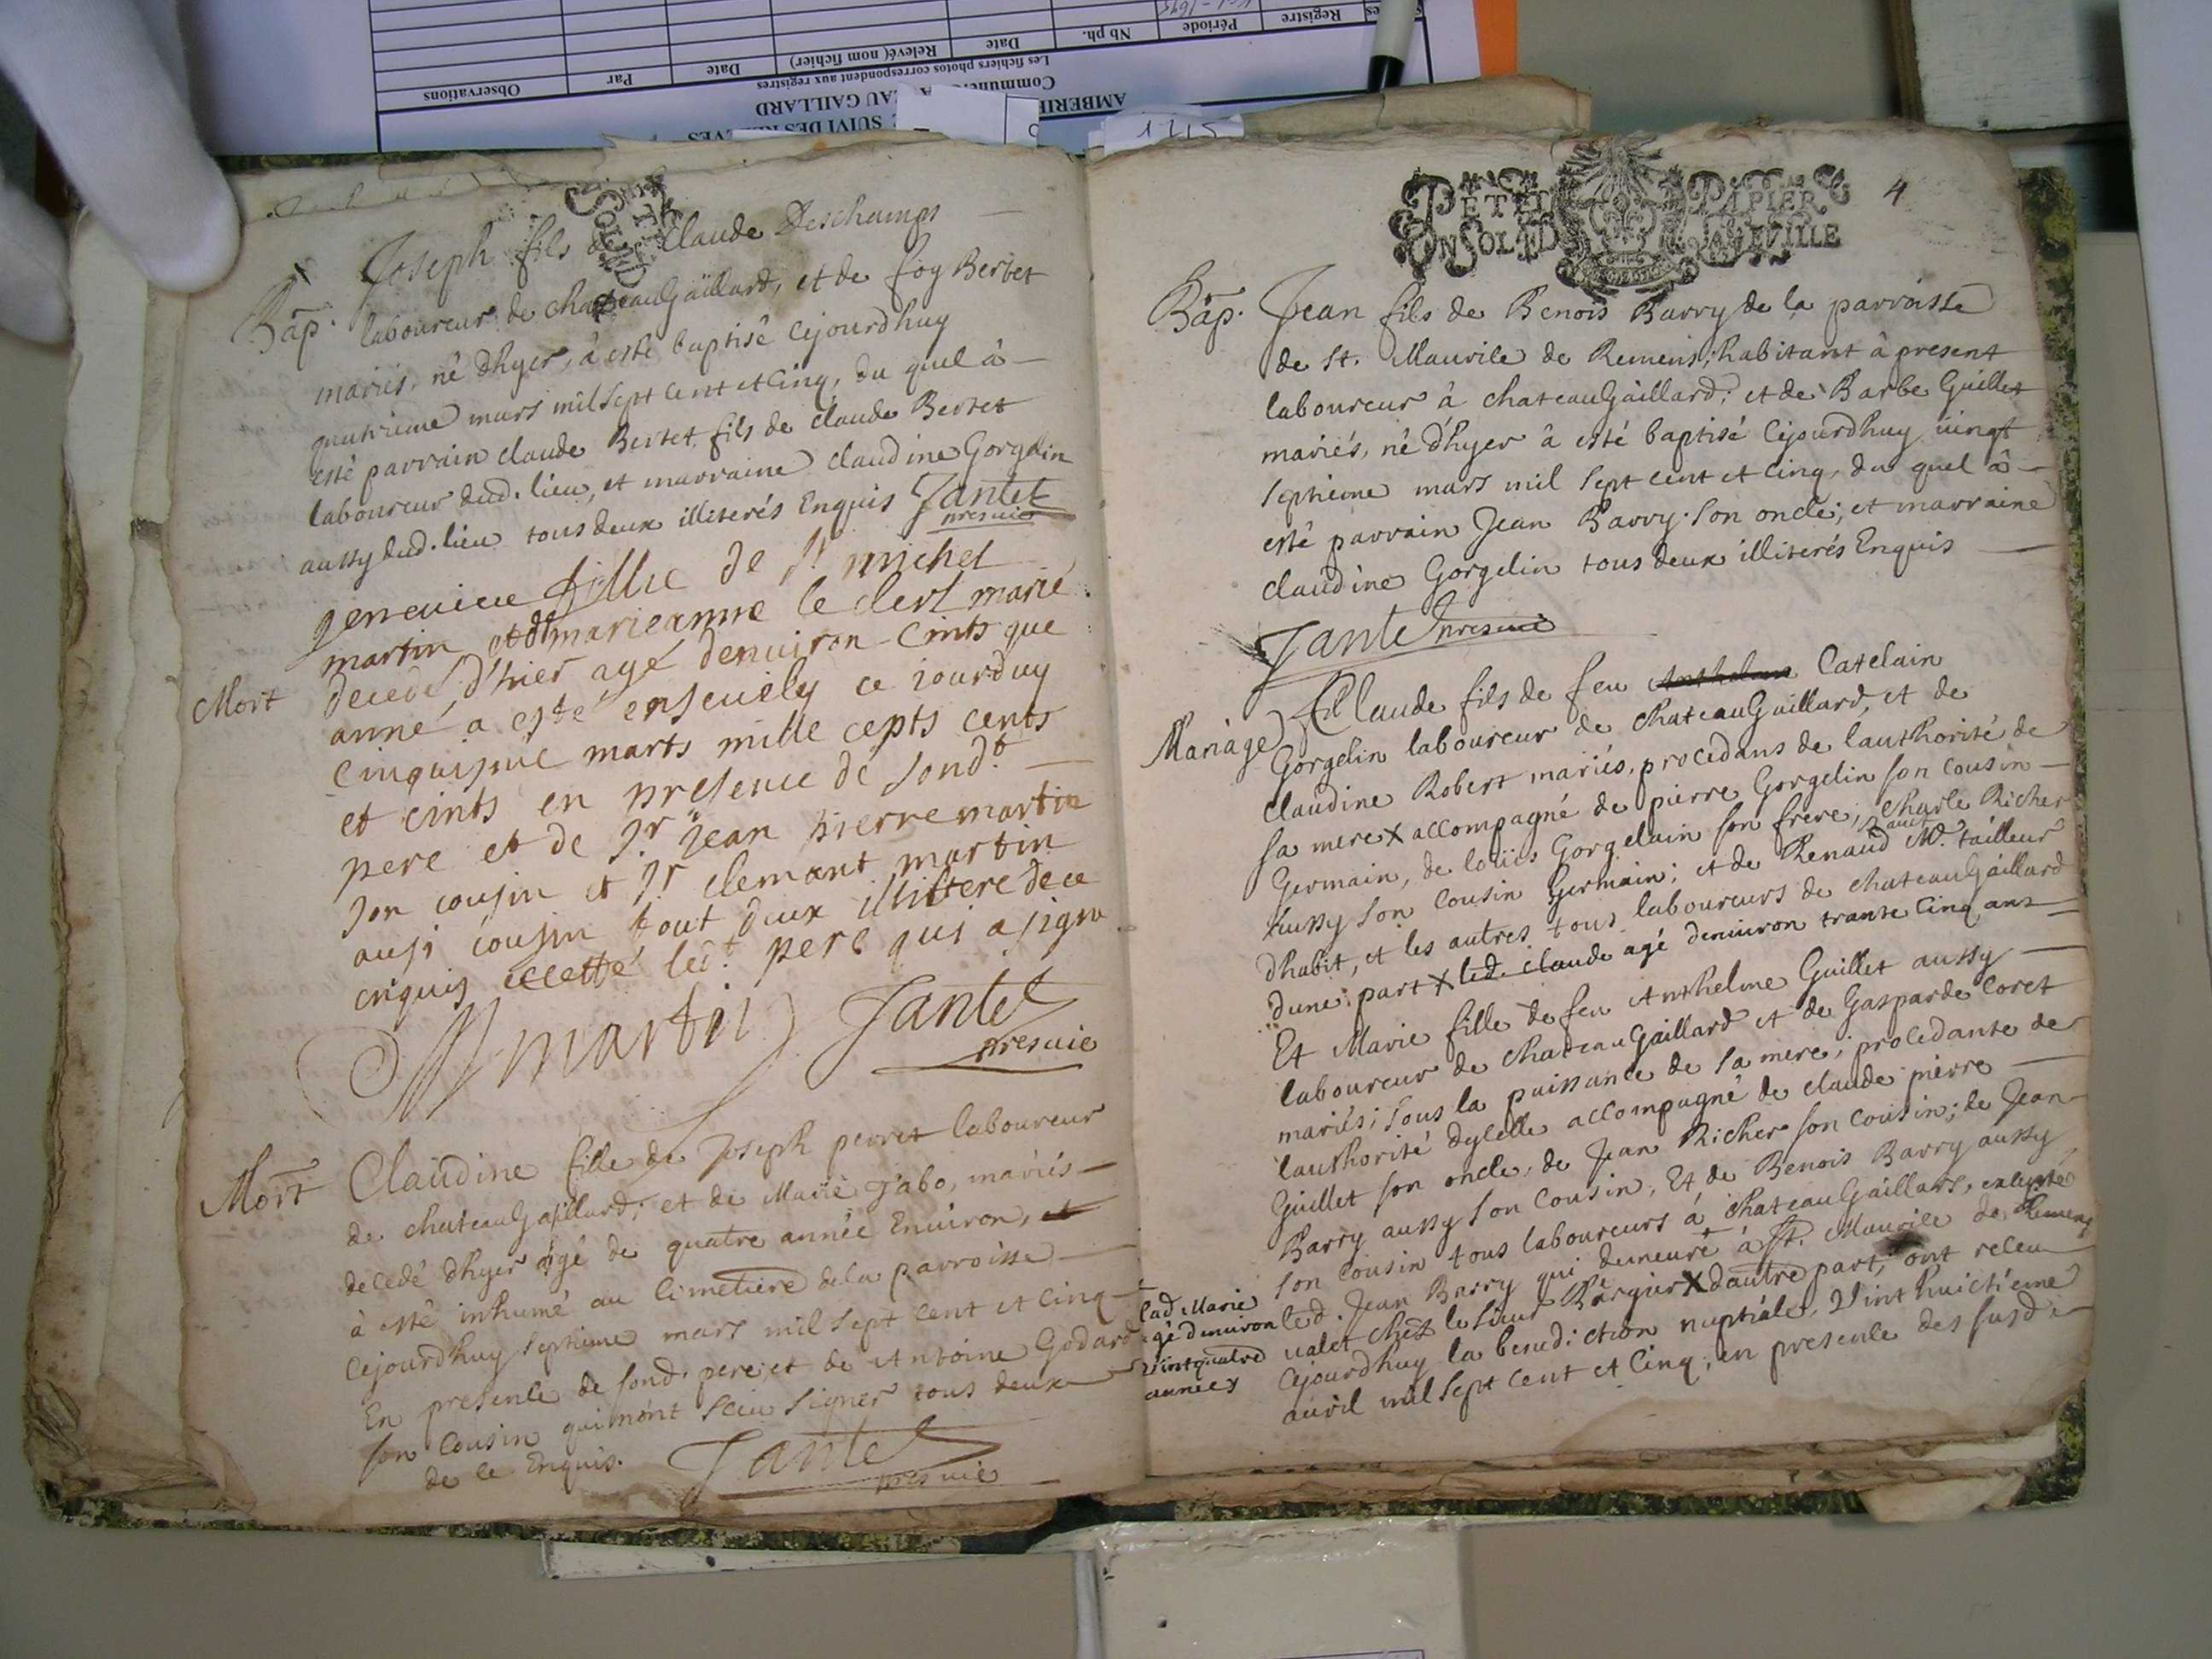 Observations
Par
Date
Relevé (nom fichier)
Date
Nb ph.
Période
Registre
Les fichiers photos correspondent aux registres
Commune
AU GAILLARD
AMBERIE
SUIVI DES RELEVES
1715
Joseph fils de Claude Deschamps
Bap. laboureur de chateauGaillard, et de foy Bertet
mariés, né d'hyer, à esté baptisé cejourdhuy
quatrieme mars mil sept cent et cinq, du quel à
esté parrain claude Bertet, fils de claude Bertet
laboureur dud. lieu, et marraine claudine Gorgelin
aussy dud. lieu tous deux illiterés Enquis Jantet
presvie
genevieve fillie de sr michel
martin et de marieanne le clert marié
Mort decedé d'hier agé denviron cints que
anné a esté ensevely ce jourduy
cinquisme marts mille cepts cents
et cints en presence de sondt
pere et de sr jean pierre martin
son cousin et sr clemant martin
ausi cousin tout deux illittere de ce
enquis eccetté ledt pere qui a signe
martin Jantet
presvie
Mort Claudine fille de Joseph perret laboureur
de chateauGaillard; et de Marie Jabo, mariés
decedé d'hyer agé de quatre année Environ, et
à esté inhumé au Cimetiere dela parroisse
cejourdhuy septieme mars mil sept cent et cinq
En presence de sond. pere; et de Antoine Godard
son Cousin qui n'ont sceu signer tous deux
de ce Enquis. Jantet
presvie
PETIT PAPIER
EN SOL LA FEVILLE
4
Bap. Jean fils de Benois Barry de la parroisse
de St. Maurile de Remens, habitant à present
laboureur à chateauGaillard; et de Barbe Guillet
mariés, né d'hyer à esté baptisé cejourdhuy vingt
septieme mars mil sept cent et cinq, du quel à
esté parrain Jean Barry son oncle; et marraine
claudine Gorgelin tous deux illiterés Enquis
Jantet presvie
Mariage Claude fils de feu Anthelme Catelain
Gorgelin laboureur de chateauGaillard, et de
claudine Robert mariés, procedans de l'authorité de
sa mere X accompagné de pierre Gorgelin son cousin
Germain, de loüis Gorgelain son frere; charle Richer
aussy son cousin Germain; et de Renaud Me. tailleur
dhabit, et les autres tous laboureurs de chateauGaillard
dune part X led. claude agé denviron trante cinq ans
Et Marie fille de feu Anthelme Guillet aussy
laboureur de chateauGaillard et de Gasparde Coret
mariés; sous la puissance de sa mere; procedante de
lauthorité dycelle accompagné de claude pierre
Guillet son oncle, de Jean Richer son cousin; de Jean
Barry aussy son cousin, Et de Benois Barry aussy
son cousin tous laboureurs à chateauGaillard, excepté
led. Jean Barry qui demeure à St. Maurile de Remens
valet chez le sieur Bergier X dautre part, ont receu
cejourdhuy la benediction nuptiale, vint huictieme
avril mil sept cent et cinq, en presence des susd.
lad. Marie
agé denviron
vint quatre
années